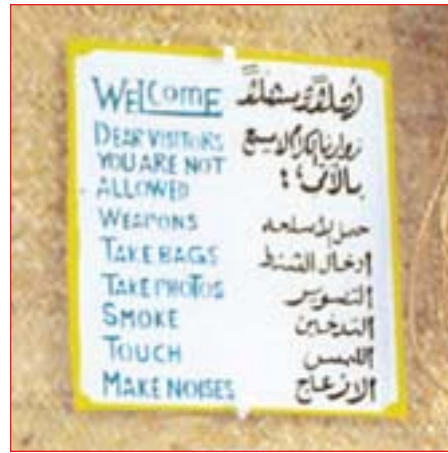 WELCOME
DEAR VISITORS
YOU ARE NOT
ALLOWED
WEAPONS
TAKE BAGS
TAKE PHOTOS
SMOKE
TOUCH
MAKE NOISES
أهلاً وسهلاً
زوارنا الكرام لا يسمح
بالآتي:
حمل الأسلحه
إدخال الشنط
التصوير
التدخين
اللمس
الازعاج